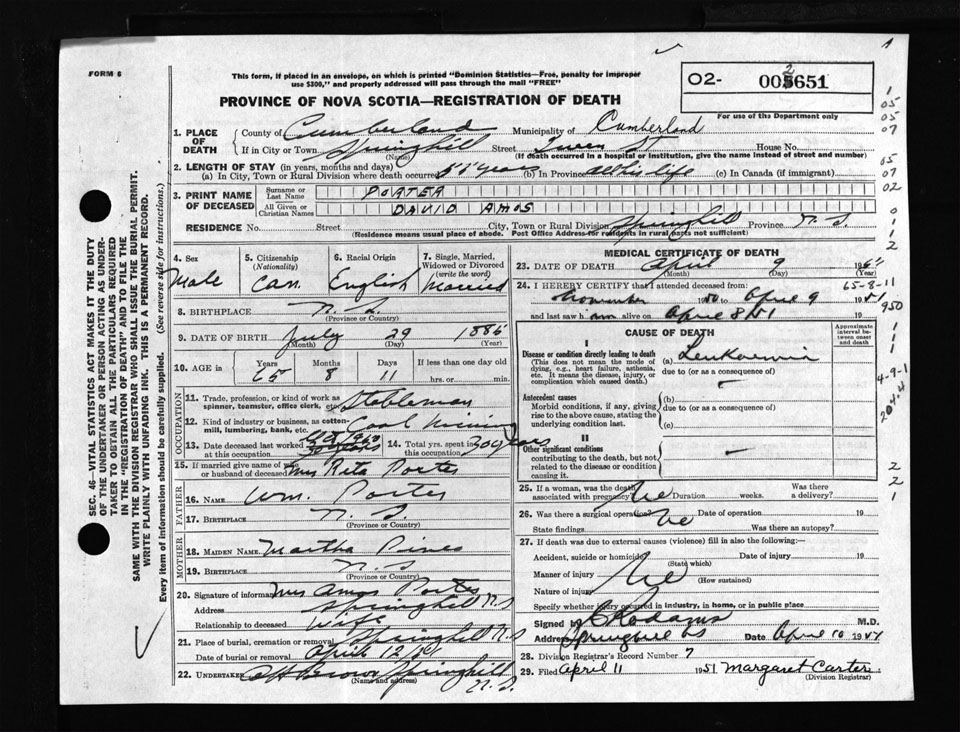 FORM 6
This form, if placed in an envelope, on which is printed "Dominion Statistics—Free, penalty for improper
use $300," and properly addressed will pass through the mail "FREE"
02- 005651
2
For use of the Department only
PROVINCE OF NOVA SCOTIA—REGISTRATION OF DEATH
1. PLACE OF DEATH
County of Cumberland Municipality of Cumberland
If in City or Town Springhill Street Queen St House No.
(Name) (If death occurred in a hospital or institution, give the name instead of street and number)
2. LENGTH OF STAY (in years, months and days)
(a) In City, Town or Rural Division where death occurred years (b) In Province all his life (c) In Canada (if immigrant)
3. PRINT NAME OF DECEASED
Surname or Last Name PORTER
All Given or Christian Names DAVID AMOS
RESIDENCE No. Street City, Town or Rural Division Springhill Province N.S.
(Residence means usual place of abode. Post Office Address for residents in rural parts not sufficient)
4. Sex Male
5. Citizenship (Nationality) Can
6. Racial Origin English
7. Single, Married, Widowed or Divorced (write the word) Married
8. BIRTHPLACE N.S.
(Province or Country)
9. DATE OF BIRTH July 29 1885
(Month) (Day) (Year)
10. AGE in Years Months Days If less than one day old
65 8 11 hrs. or min.
OCCUPATION
11. Trade, profession, or kind of work as
spinner, teamster, office clerk, etc. Stableman
12. Kind of industry or business, as cotton-
mill, lumbering, bank, etc. Coal Mining
13. Date deceased last worked
at this occupation
14. Total yrs. spent in
this occupation 30 years
15. If married give name of wife
or husband of deceased Mrs Rita Porter
FATHER
16. NAME Wm. Porter
17. BIRTHPLACE N.S.
(Province or Country)
MOTHER
18. MAIDEN NAME Martha
19. BIRTHPLACE N.S
(Province or Country)
20. Signature of informant Mrs Amos Porter
Address Springhill N.S
Relationship to deceased Wife
21. Place of burial, cremation or removal Springhill N.S
Date of burial or removal April 12/51
22. UNDERTAKER Brown Springhill
(Name and address) N.S.
MEDICAL CERTIFICATE OF DEATH
23. DATE OF DEATH April 9 1951
(Month) (Day) (Year)
24. I HEREBY CERTIFY that I attended deceased from:
November 1950 to April 9 1951
and last saw him alive on April 8 51 19
CAUSE OF DEATH
Approximate interval between onset and death
I
Disease or condition directly leading to death
(This does not mean the mode of dying, e.g., heart failure, asthenia, etc. It means the disease, injury, or complication which caused death.)
(a) Leukaemia
due to (or as a consequence of)
Antecedent causes
Morbid conditions, if any, giving rise to the above cause, stating the underlying condition last.
(b)
due to (or as a consequence of)
(c)
II
Other significant conditions
contributing to the death, but not related to the disease or condition causing it.
25. If a woman, was the death
associated with pregnancy? No Duration weeks. Was there a delivery?
26. Was there a surgical operation? No Date of operation 19
State findings Was there an autopsy?
27. If death was due to external causes (violence) fill in also the following:—
Accident, suicide or homicide? Date of injury 19
(State which)
Manner of injury No
(How sustained)
Nature of injury
Specify whether injury occurred in industry, in home, or in public place
Signed by M.D.
Address Springhill NS Date April 10 1951
28. Division Registrar's Record Number 7
29. Filed April 11 1951 Margaret Carter
(Division Registrar)
SEC. 46—VITAL STATISTICS ACT MAKES IT THE DUTY
OF THE UNDERTAKER OR PERSON ACTING AS UNDER-
TAKER TO OBTAIN ALL THE PARTICULARS REQUIRED
IN THE "REGISTRATION OF DEATH" AND TO FILE THE
SAME WITH THE DIVISION REGISTRAR WHO SHALL ISSUE THE BURIAL PERMIT.
WRITE PLAINLY WITH UNFADING INK. THIS IS A PERMANENT RECORD.
Every item of information should be carefully supplied. (See reverse side for instructions.)
1
05
05
07
05
07
02
0
1
1
2
65-8-11
950
1
1
1
4-9-1
204.4
2
2
1